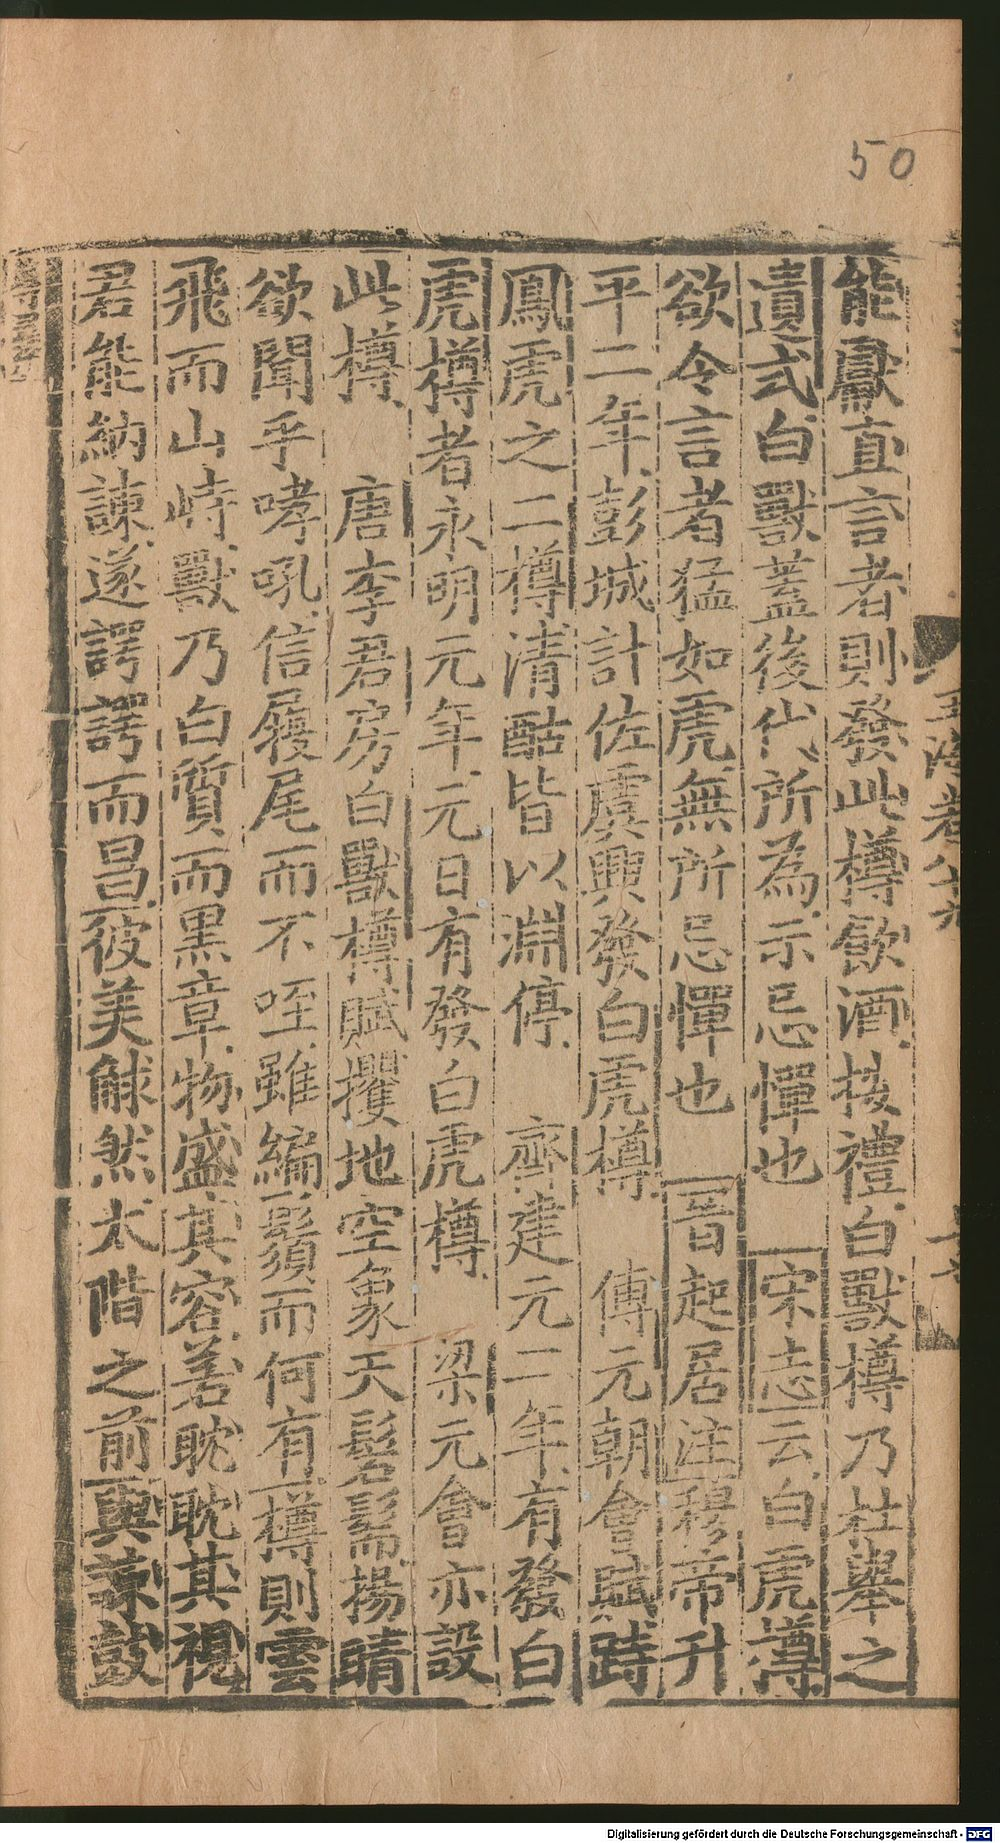 50
能獻直言者則發此樽飲酒按禮白獸樽乃杜舉之
遺式白獸蓋後代所為示忌憚也 宋志云白虎樽
欲令言者猛如虎無所忌憚也 晉起居注穆帝升
平二年彭城計佐虞興發白虎樽 傅元朝會賦跱
鳳虎之二樽清酤皆以淵停 齊建元二年有發白
虎樽者永明元年元日有發白虎樽 梁元會亦設
此樽 唐李君房白獸樽賦攫地空象天髫髵揚睛
欲聞乎哮吼信履尾而不咥雖編鬚而何有樽則雲
飛而山峙獸乃白質而黑章物盛其容若耽耽其視
君能納諫遂諤諤而昌彼美觩然太階之前與諫鼓
玉海卷八十九
十六
Digitalisierung gefördert durch die Deutsche Forschungsgemeinschaft - DFG